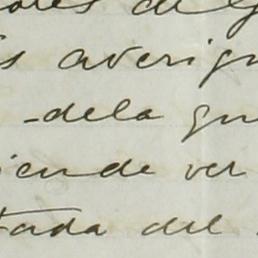 ores de G
s averigu
-dela gu
iende ver
tada del